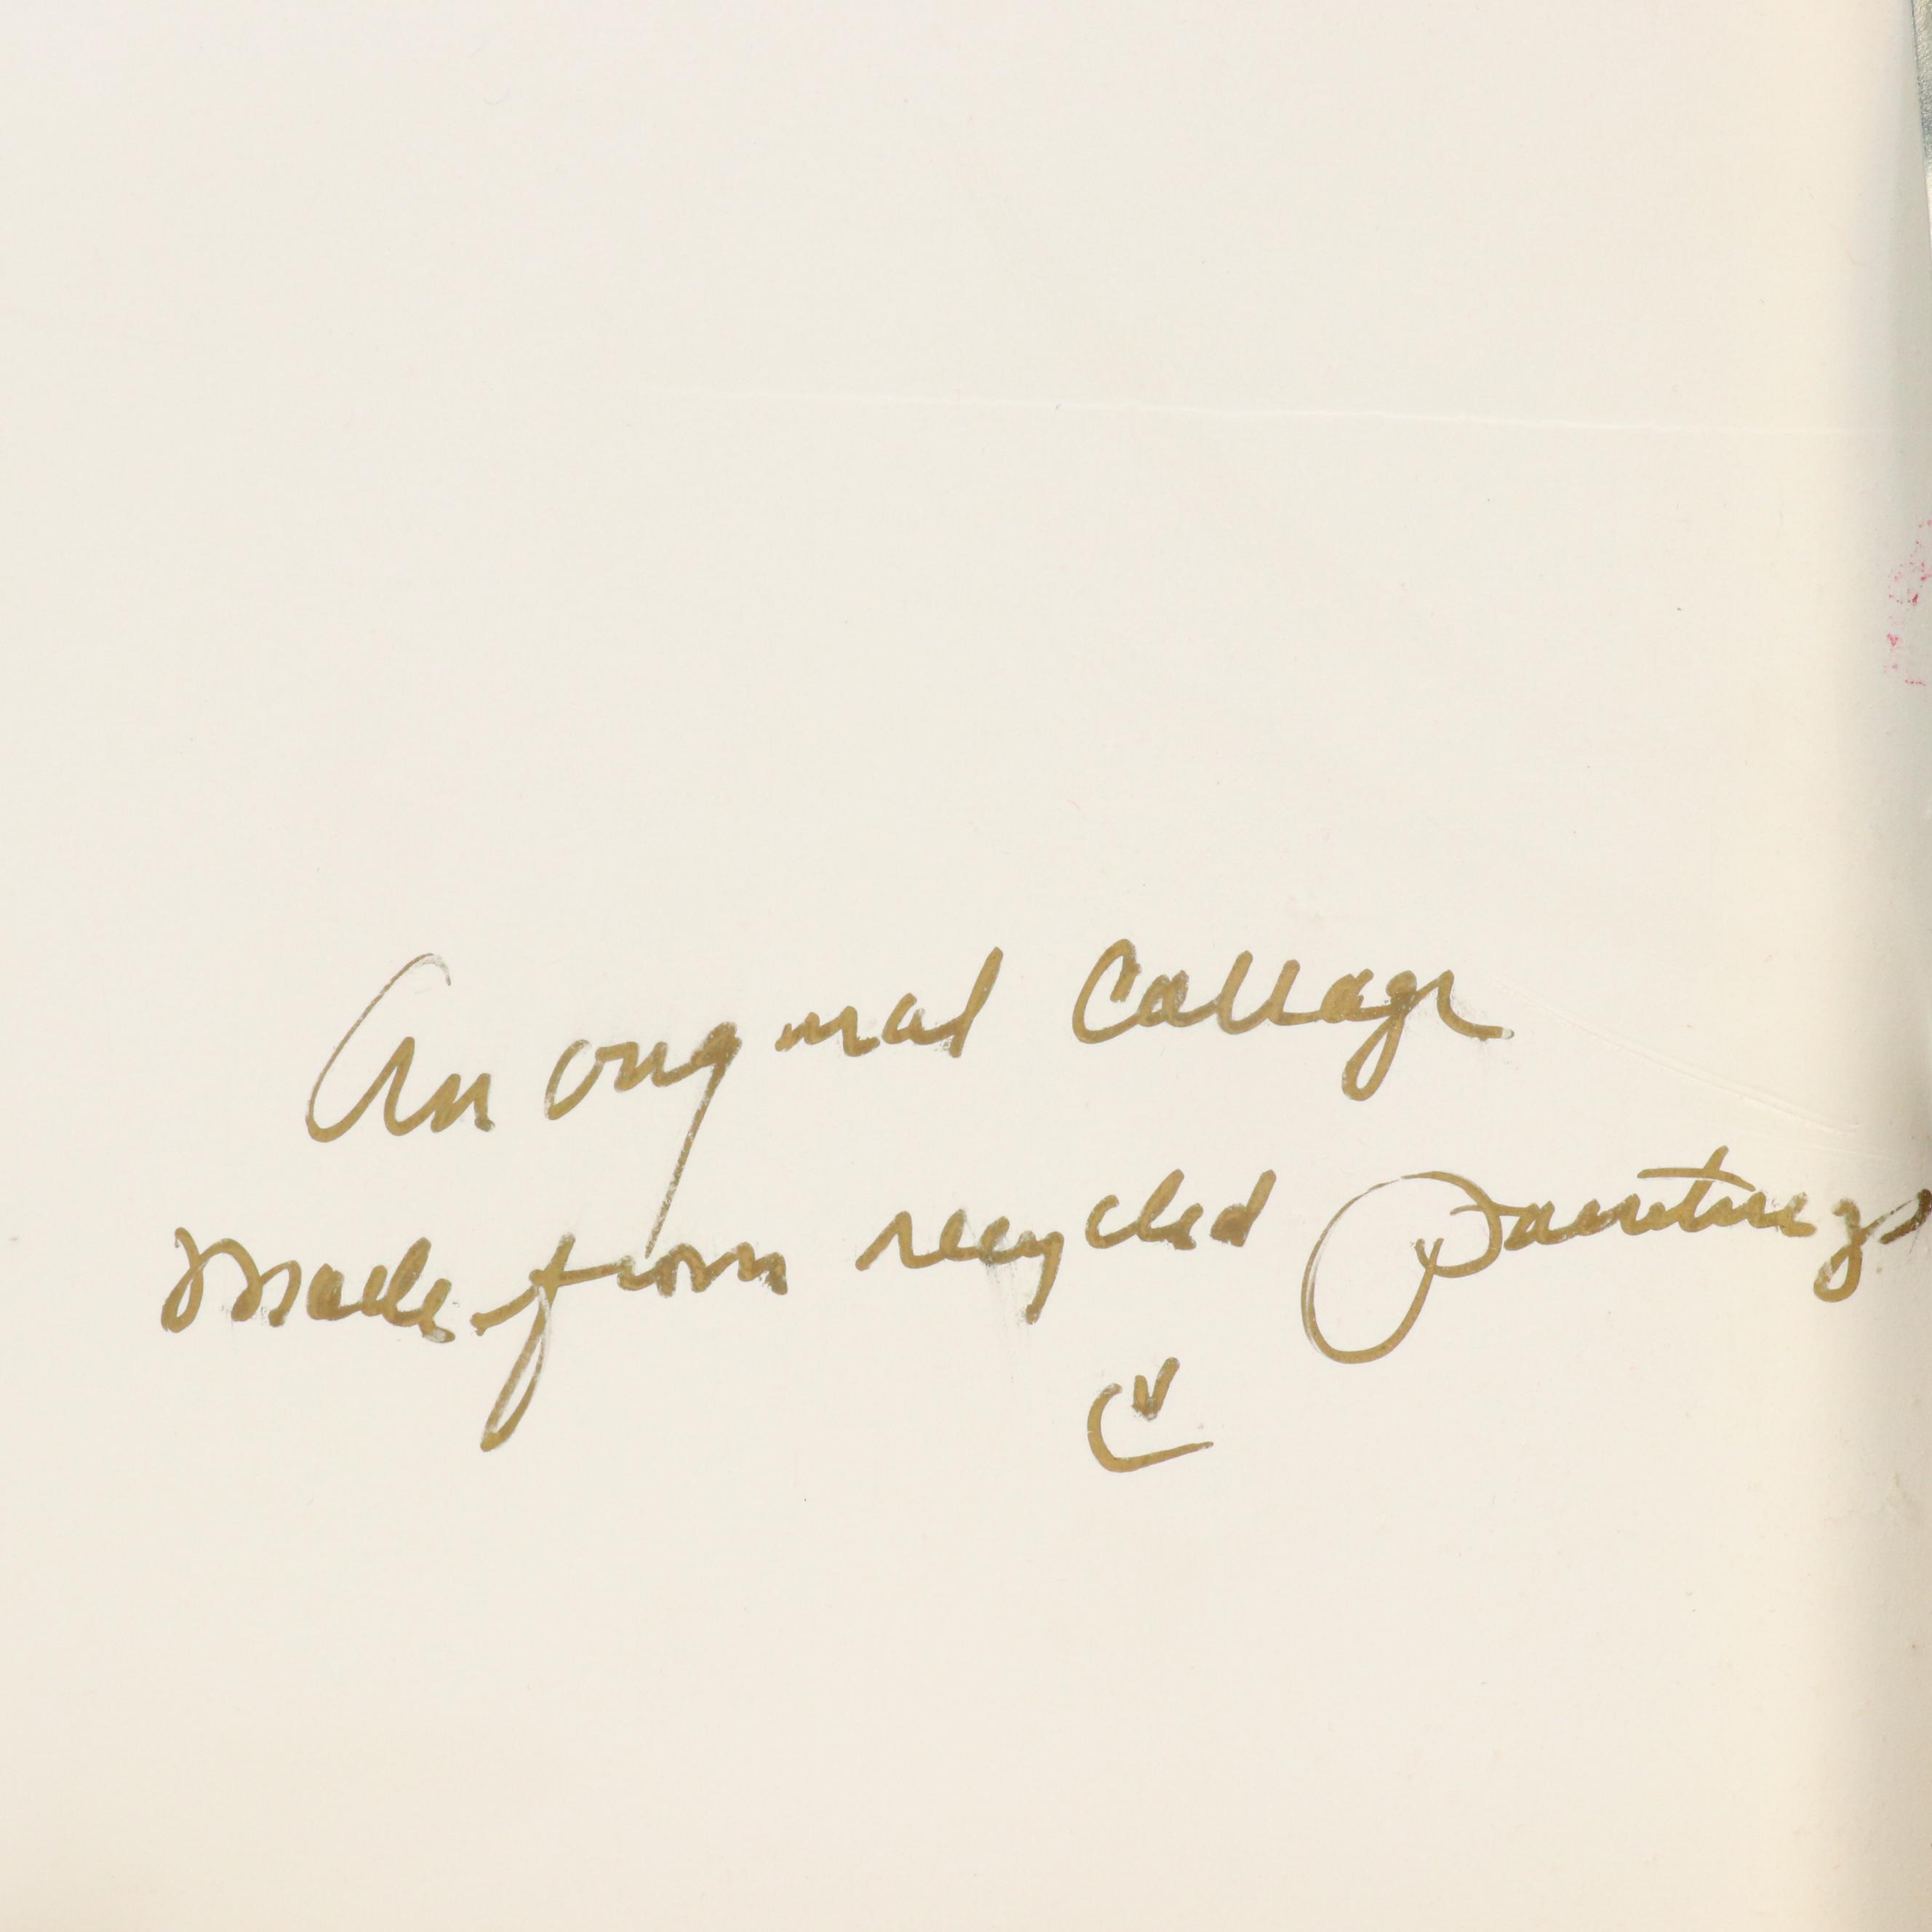 An original Collage
made from recycled Paintings